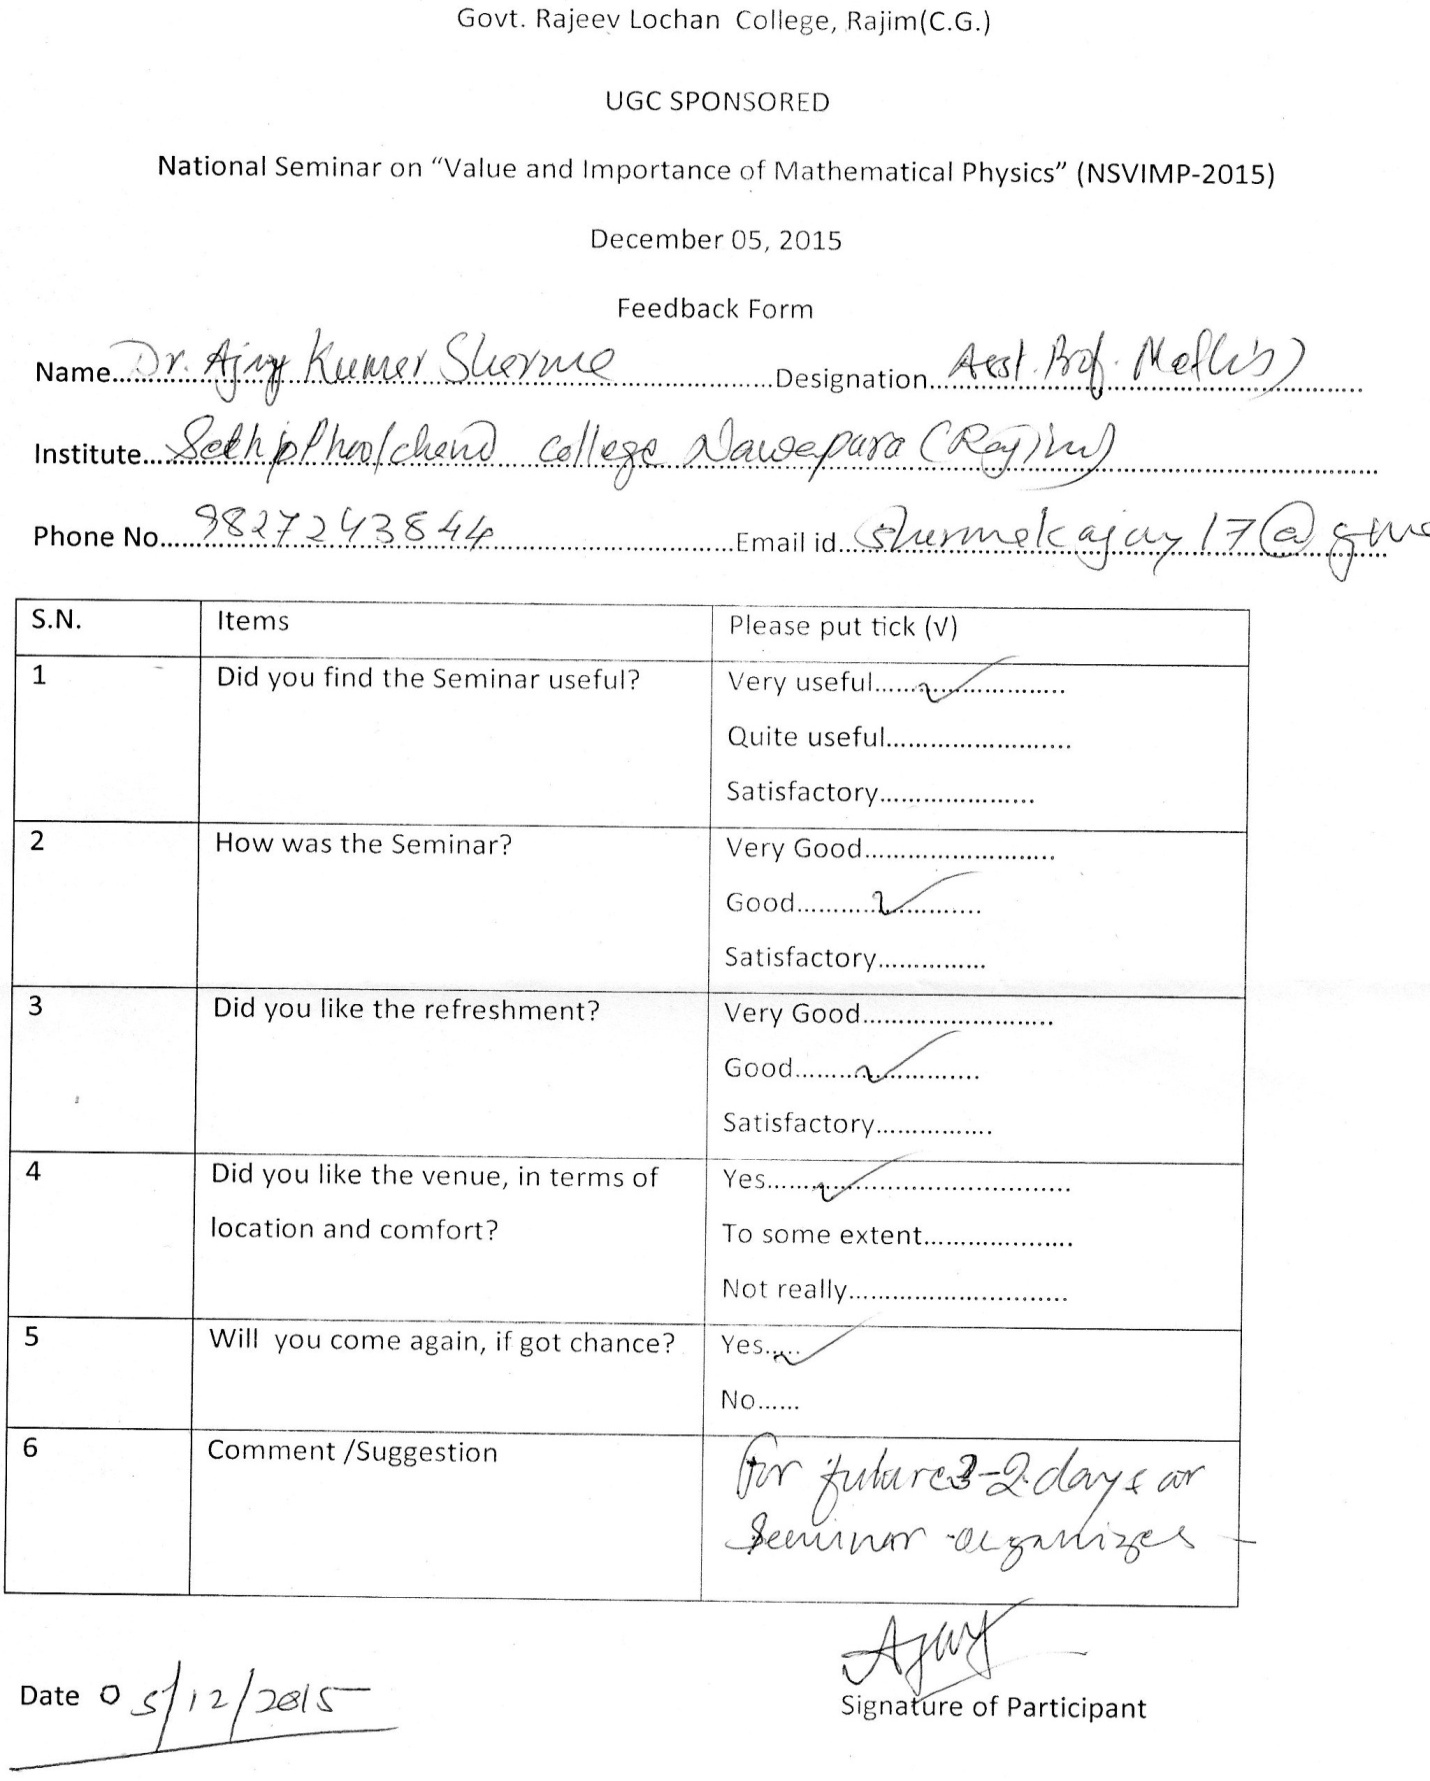 Govt. Rajeev Lochan College, Rajim(C.G.)
UGC SPONSORED
National Seminar on “Value and Importance of Mathematical Physics” (NSVIMP-2015)
December 05, 2015
Feedback Form
Name Dr. Ajay Kumar Sharma Designation Asst. Prof. Maths)
Institute Seth Phoolchand College Nawapara (Rajim)
Phone No. 9827243844 Email id sharmakajay17@gma
S.N. Items Please put tick (√)
1 Did you find the Seminar useful? Very useful ✓
Quite useful
Satisfactory
2 How was the Seminar? Very Good
Good ✓
Satisfactory
3 Did you like the refreshment? Very Good
Good ✓
Satisfactory
4 Did you like the venue, in terms of Yes ✓
location and comfort? To some extent
Not really
5 Will you come again, if got chance? Yes ✓
No
6 Comment /Suggestion For future 3-2 days or
Seminar organizes
Ajay
Date 05/12/2015 Signature of Participant